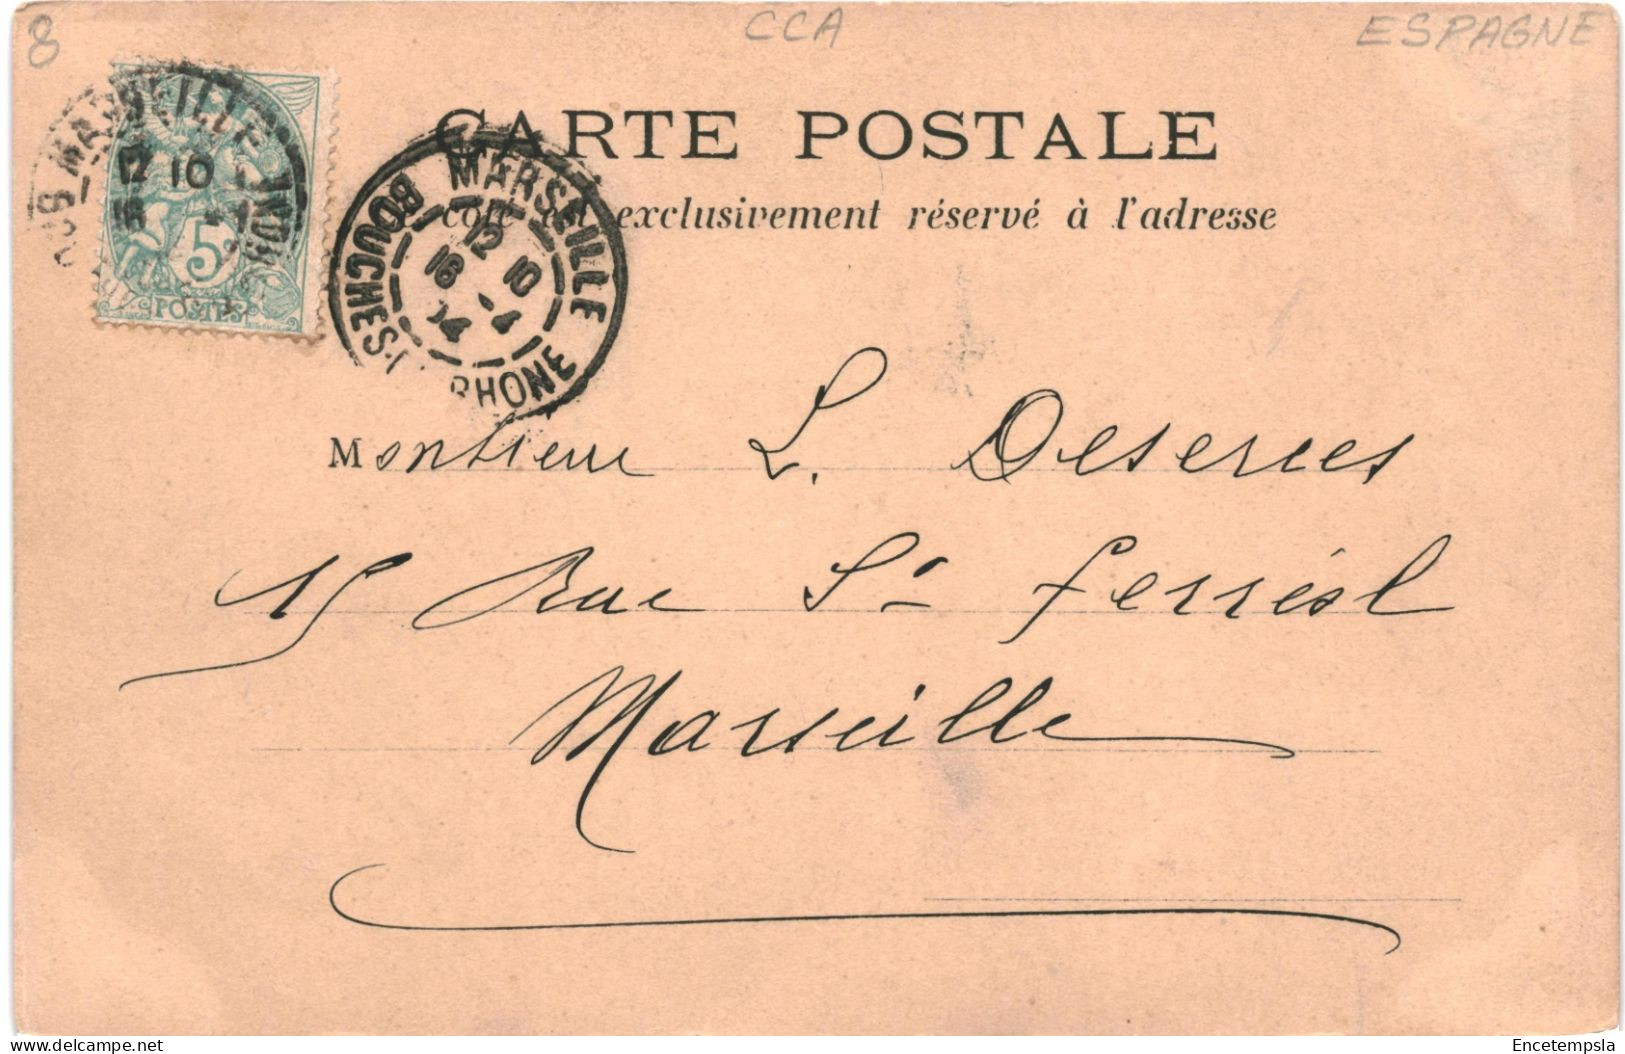 8
CCA
ESPAGNE
CARTE POSTALE
côté est exclusivement réservé à l'adresse
MARSEILLE
12 10
5c
POSTES
MARSEILLE
BOUCHES-
RHONE
12
16 10
14 -4
Monsieur L. Deserces
15 Rue St ferréol
Marseille
delcampe.net
Encetempsla